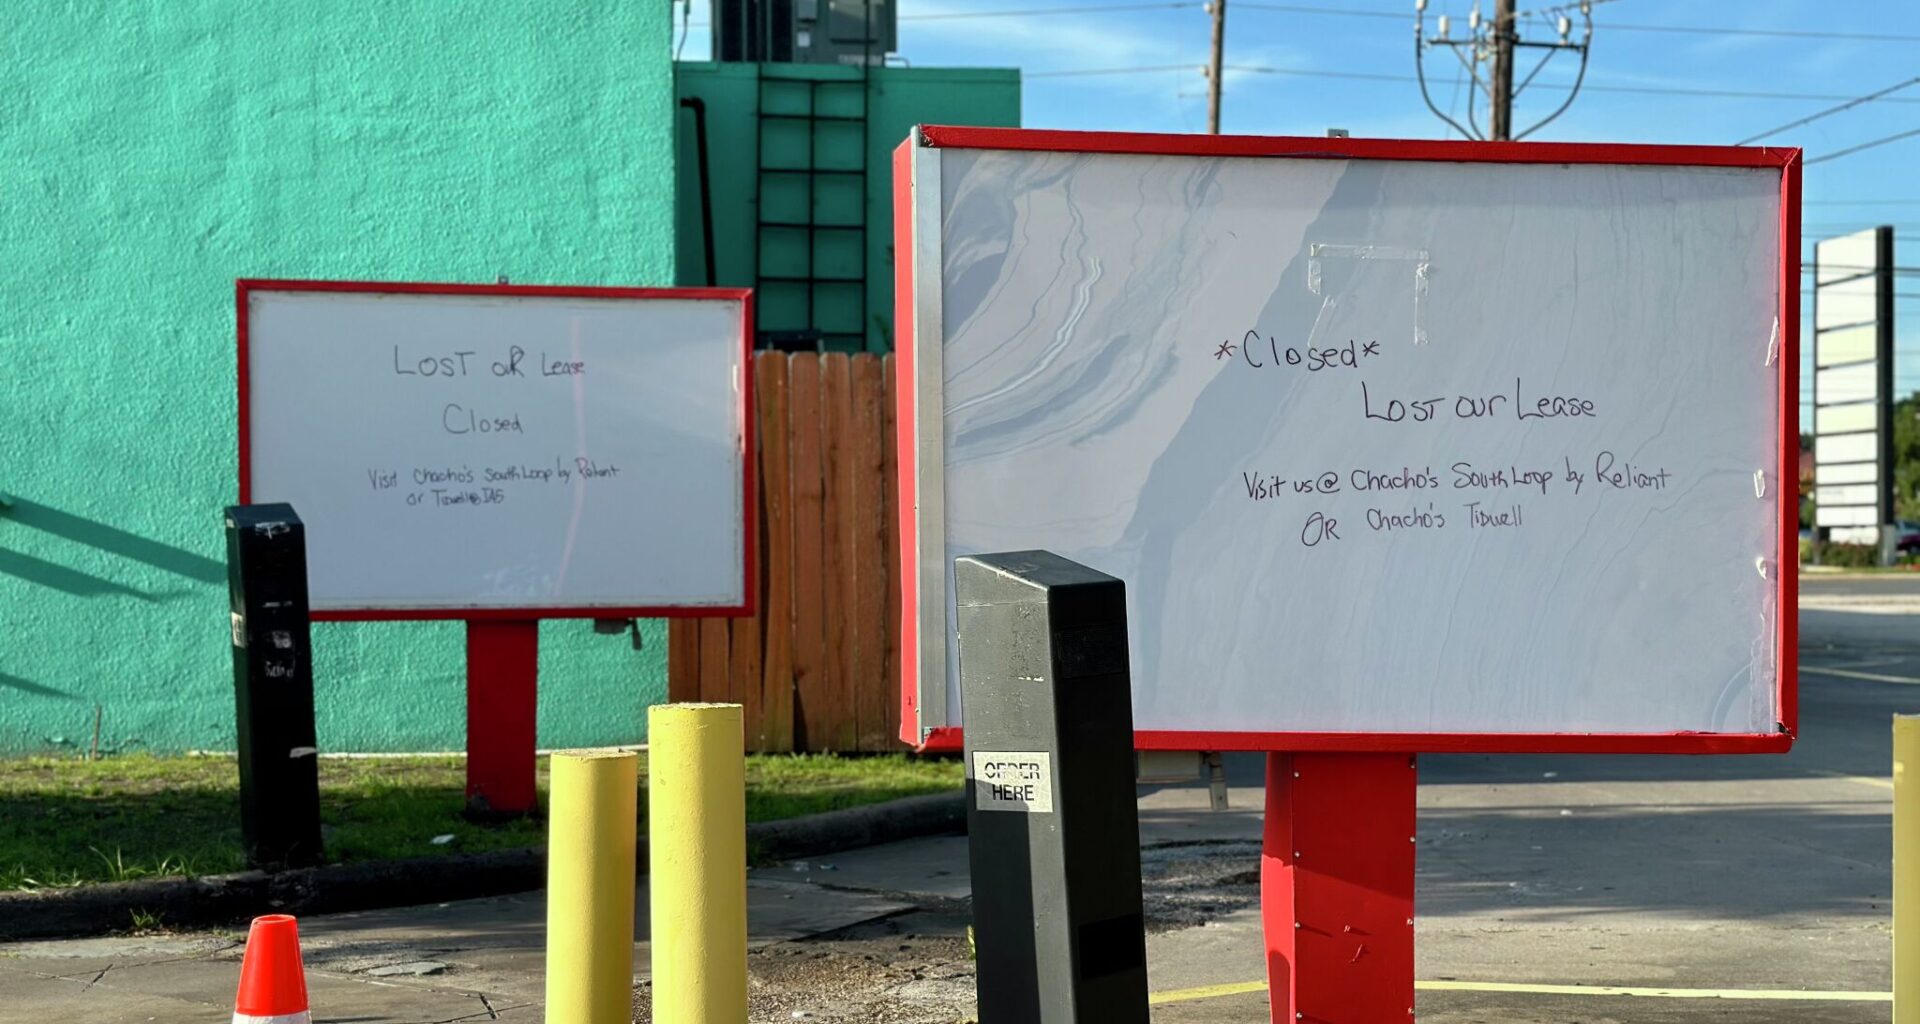 LOST OUR Lease
Closed
Visit Chacho's South Loop by Reliant
or Tidwell @ I45
*Closed*
LOST our Lease
Visit us @ Chacho's South Loop by Reliant
OR Chacho's Tidwell
ORDER
HERE